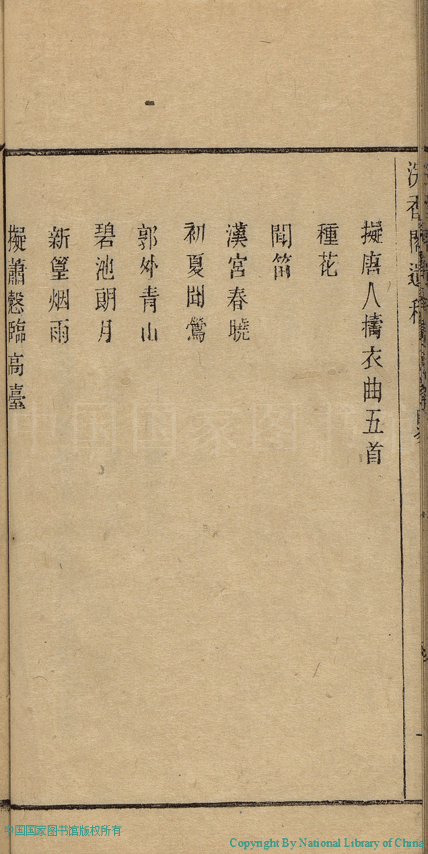 洗香閣遺稿
擬唐人擣衣曲五首
種花
聞笛
漢宮春曉
初夏聞鶯
郭外青山
碧池朗月
新篁烟雨
擬蕭愨臨高臺
中国国家图书馆
中国国家图书馆版权所有
Copyright By National Library of China